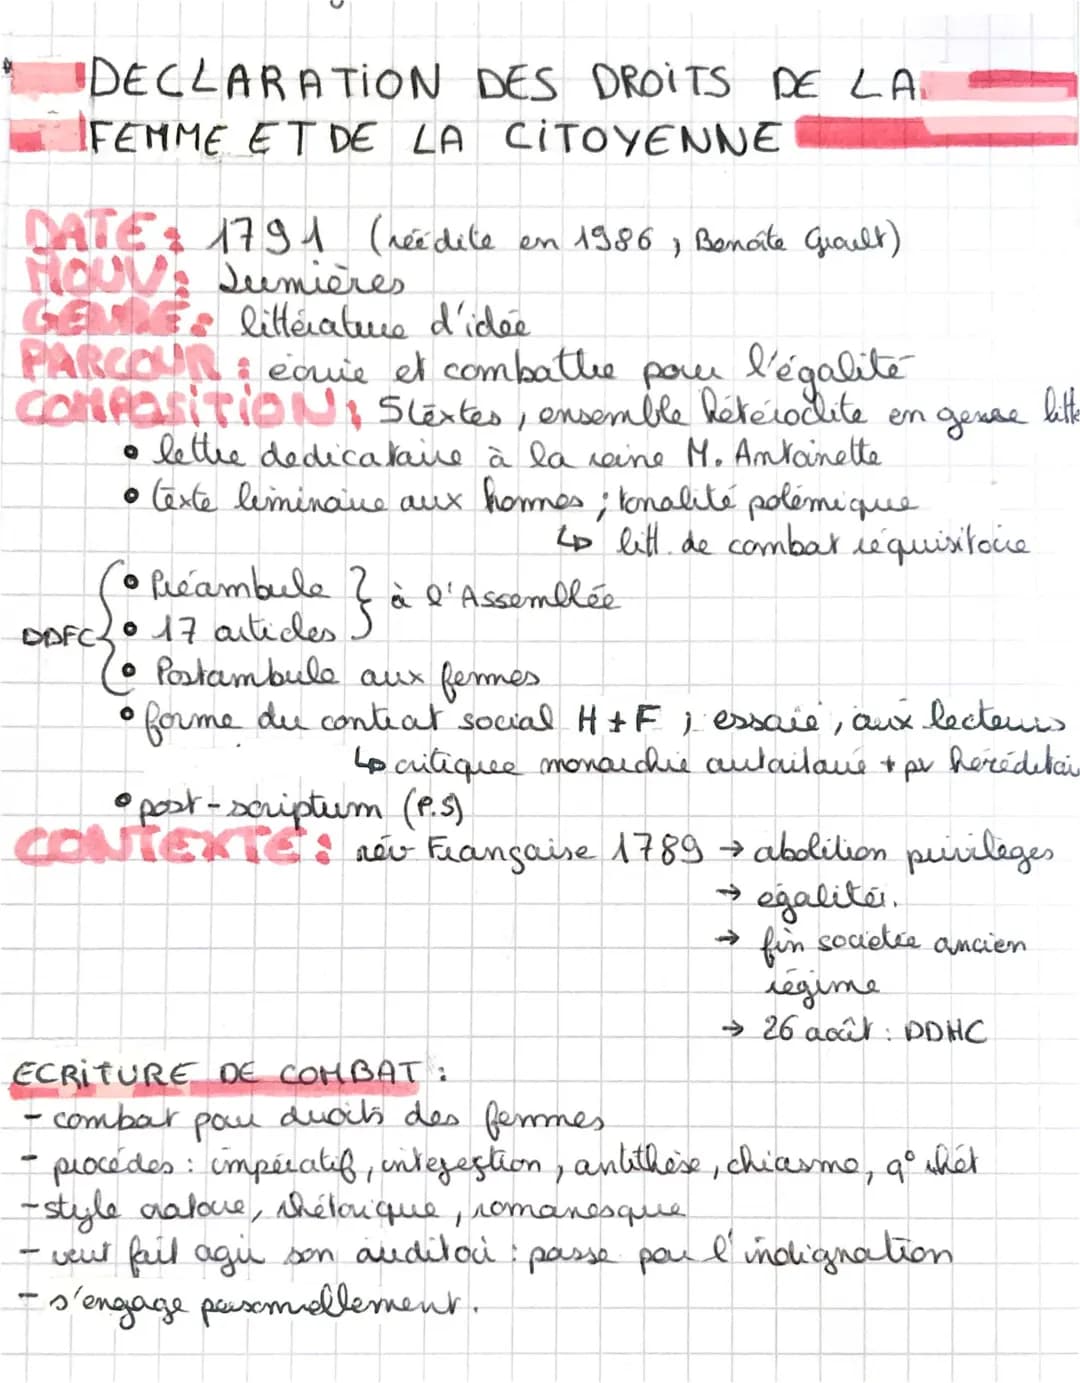 DECLARATION DES DROITS DE LA
FEMME ET DE LA CITOYENNE
DATE: 1791 (réédite en 1986, Benoîte Groult)
MOUV: Lumières
GENRE: littérature d'idée
PARCOUR: écrire et combattre pour l'égalité
COMPOSITION: 5 textes, ensemble hétéroclite en genre litte
• lettre dedicataire à la reine M. Antoinette
• texte liminaire aux hommes; tonalité polémique
↳ litt. de combat réquisitoire
• Préambule } à l'Assemblée
DDFC { • 17 articles
• Postambule aux femmes
• forme du contrat social H+F ; essaie, aux lecteurs
↳ critiquee monarchie autaitaire + pv herédétair
• post-scriptum (P.S)
CONTEXTE: rév Française 1789 → abolition privilèges
→ égalités.
→ fin societée ancien
régime
→ 26 août: DDHC
ECRITURE DE COMBAT:
- combat pour droits des femmes
- procédés: impératif, interjection, antithèse, chiasme, q° rhét
- style oratoire, rhétorique, romanesque
- veut fait agir son auditoi: passe par l'indignation
- s'engage personnellement.